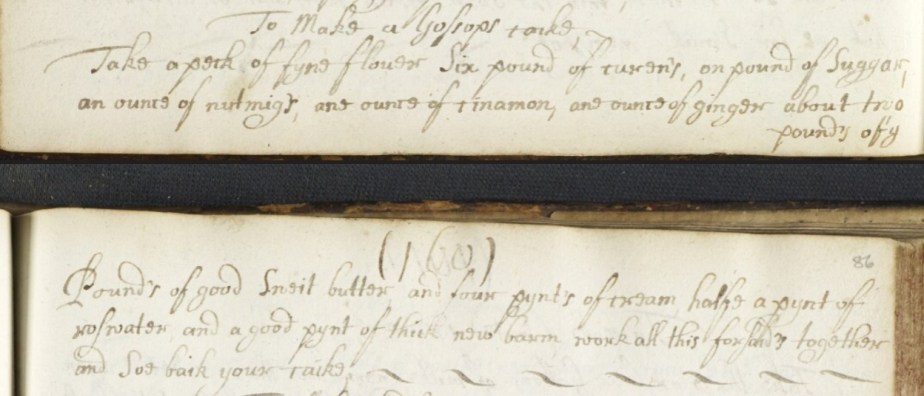 To Make a Gossops caike,
Take a peck of fyne flouer Six pound of curens, on pound of Suggar,
an ounce of nutmigs, ane ounce of cinamon, ane ounce of ginger about two
pounds of g
(160)
86
Pounds of good Sueit butter, and four pynts of cream halfe a pynt of
roswater and a good pynt of thick new barm work all this forsaids together
and Soe baik your caike,